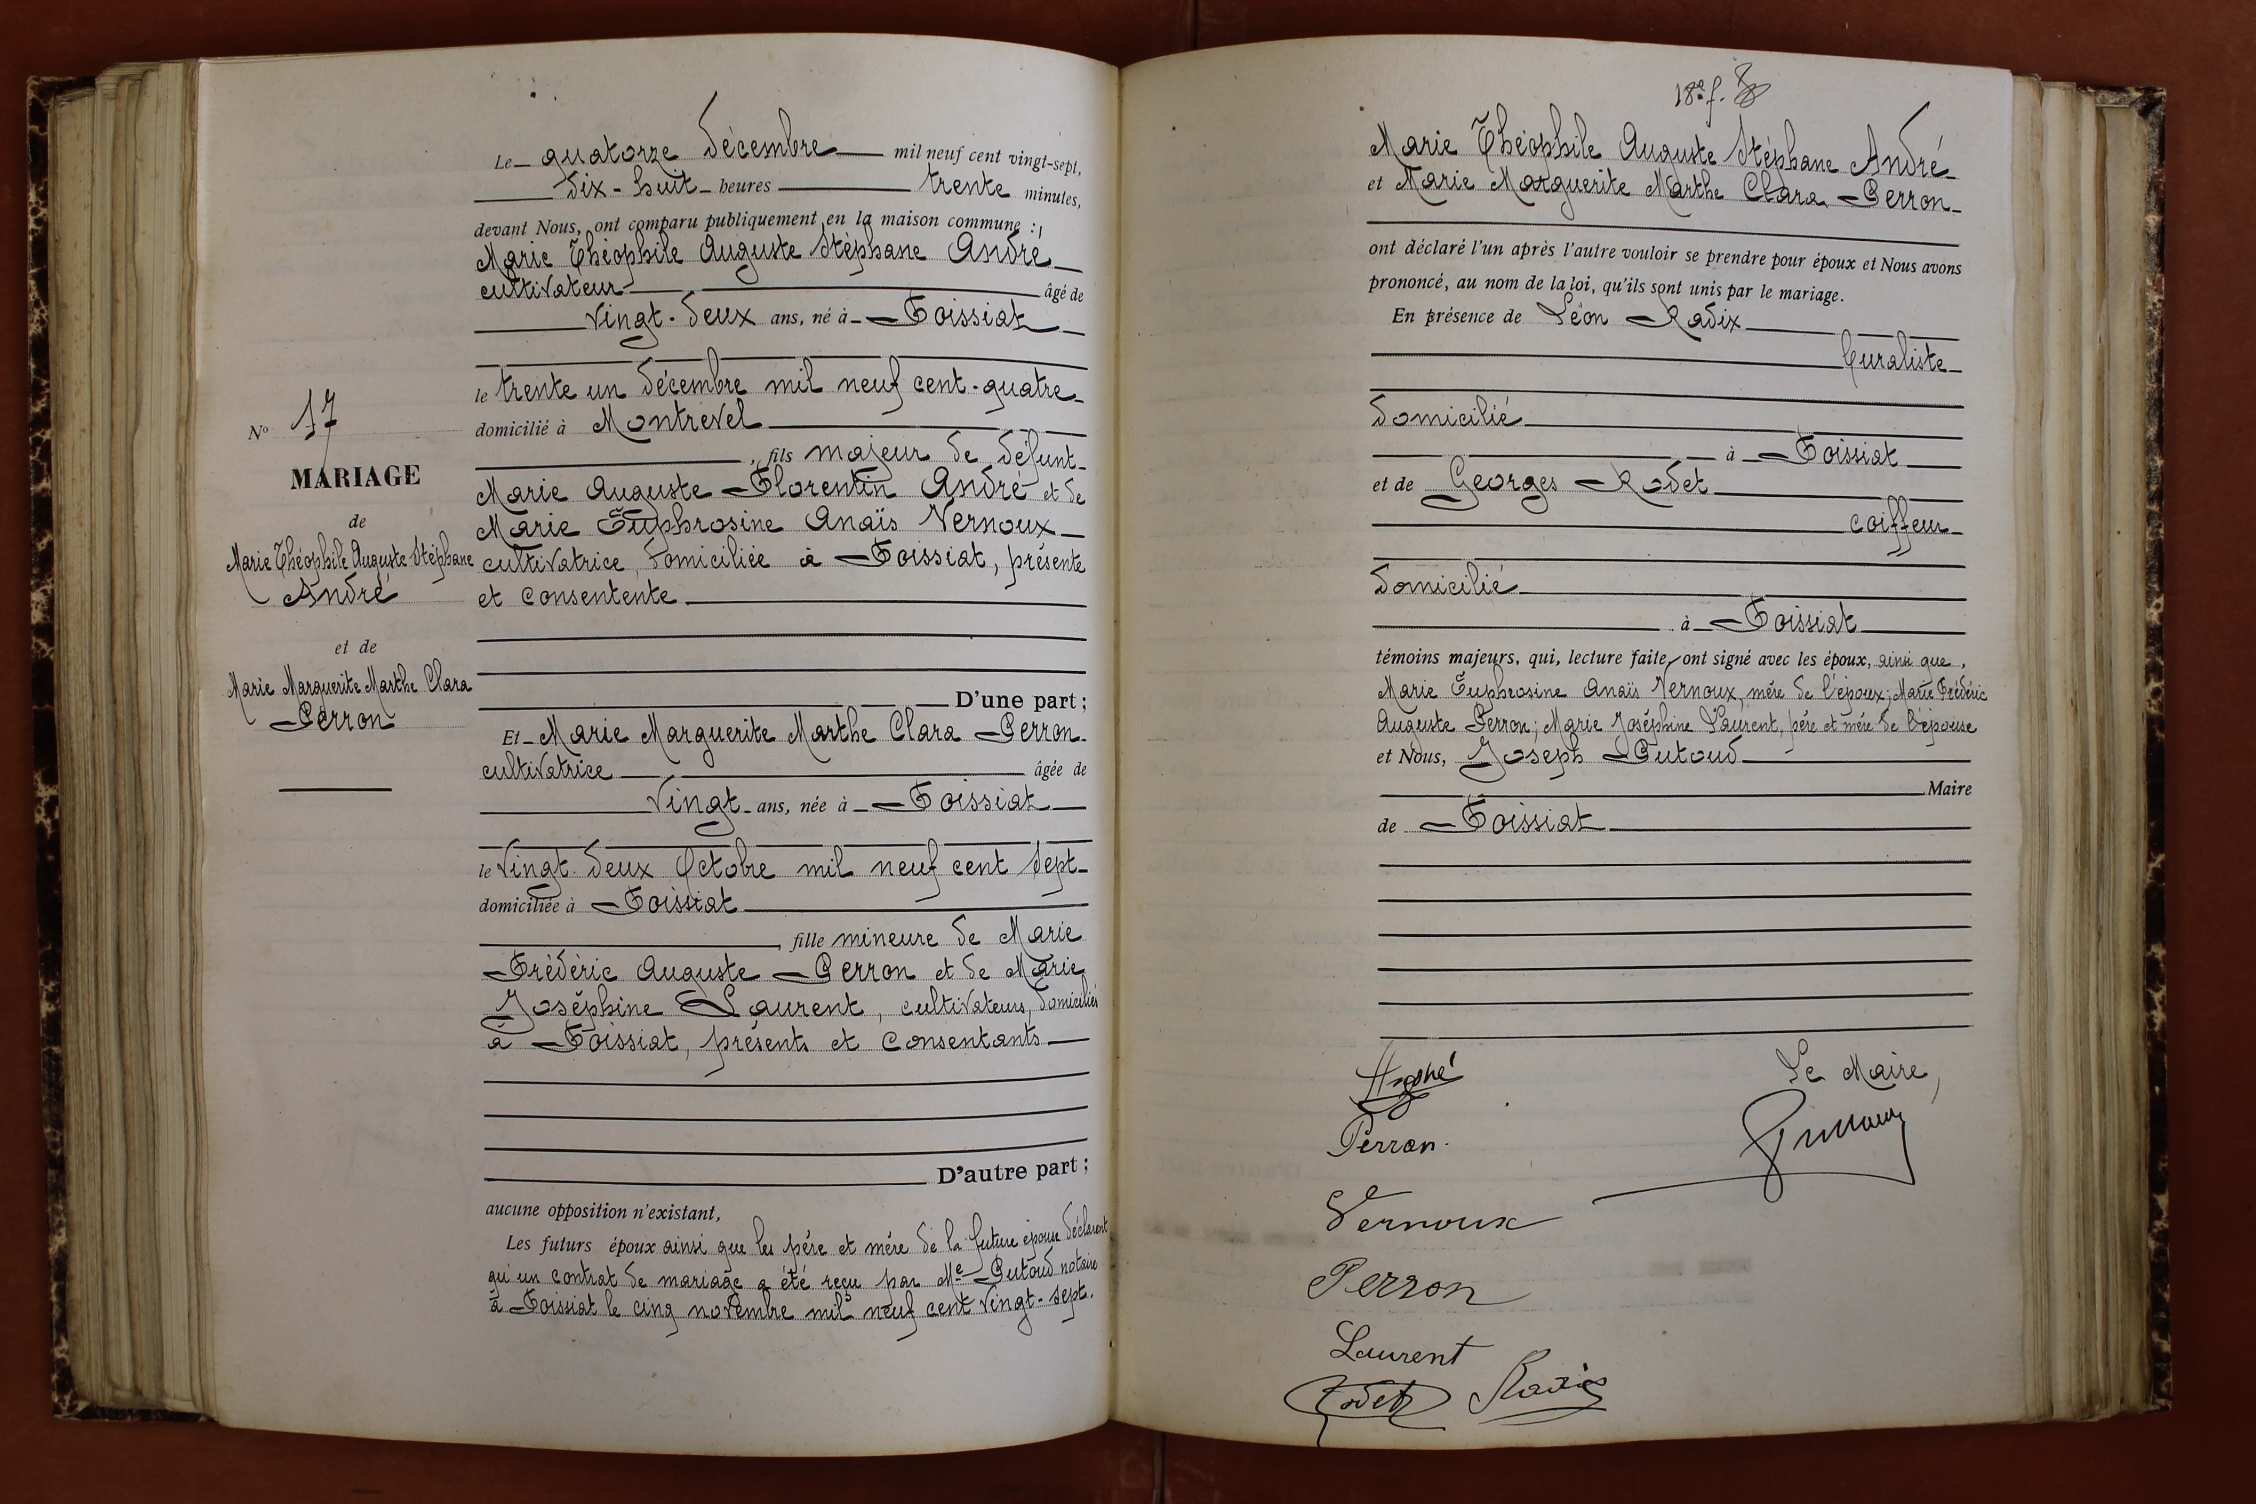 Le quatorze décembre mil neuf cent vingt-sept,
dix-huit heures trente minutes,
devant Nous, ont comparu publiquement en la maison commune :
Marie Théophile Auguste Stéphane André
cultivateur âgé de
vingt-deux ans, né à Foissiat
le trente un décembre mil neuf cent-quatre
domicilié à Montrevel
, fils majeur de défunt
Marie Auguste Florentin André et de
Marie Euphrosine Anaïs Vernoux
cultivatrice, domiciliée à Foissiat, présente
et consentente
D'une part ;
Et Marie Marguerite Marthe Clara Perron
cultivatrice âgée de
vingt ans, née à Foissiat
le vingt-deux Octobre mil neuf cent sept
domiciliée à Foissiat
, fille mineure de Marie
Frédéric Auguste Perron et de Marie
Joséphine Laurent, cultivateurs, domiciliés
à Foissiat, présents et consentants
D'autre part ;
aucune opposition n'existant,
Les futurs époux ainsi que les père et mère de la future épouse déclarent
qu'un contrat de mariage a été reçu par Me Putoud notaire
à Foissiat le cinq novembre mil neuf cent vingt-sept.
No 17
MARIAGE
de
Marie Théophile Auguste Stéphane
André
et de
Marie Marguerite Marthe Clara
Perron
18e f.
Marie Théophile Auguste Stéphane André
et Marie Marguerite Marthe Clara Perron
ont déclaré l'un après l'autre vouloir se prendre pour époux et Nous avons
prononcé, au nom de la loi, qu'ils sont unis par le mariage.
En présence de Léon Radix
buraliste
domicilié
à Foissiat
et de Georges Rodet
coiffeur
domicilié
à Foissiat
témoins majeurs, qui, lecture faite, ont signé avec les époux, ainsi que,
Marie Euphrosine Anaïs Vernoux, mère de l'époux; Marie Frédéric
Auguste Perron; Marie Joséphine Laurent, père et mère de l'épouse
et Nous, Joseph Putoud
Maire
de Foissiat
André
Le Maire,
Perron
Putoud
Vernoux
Perron
Laurent
Rodet Radix